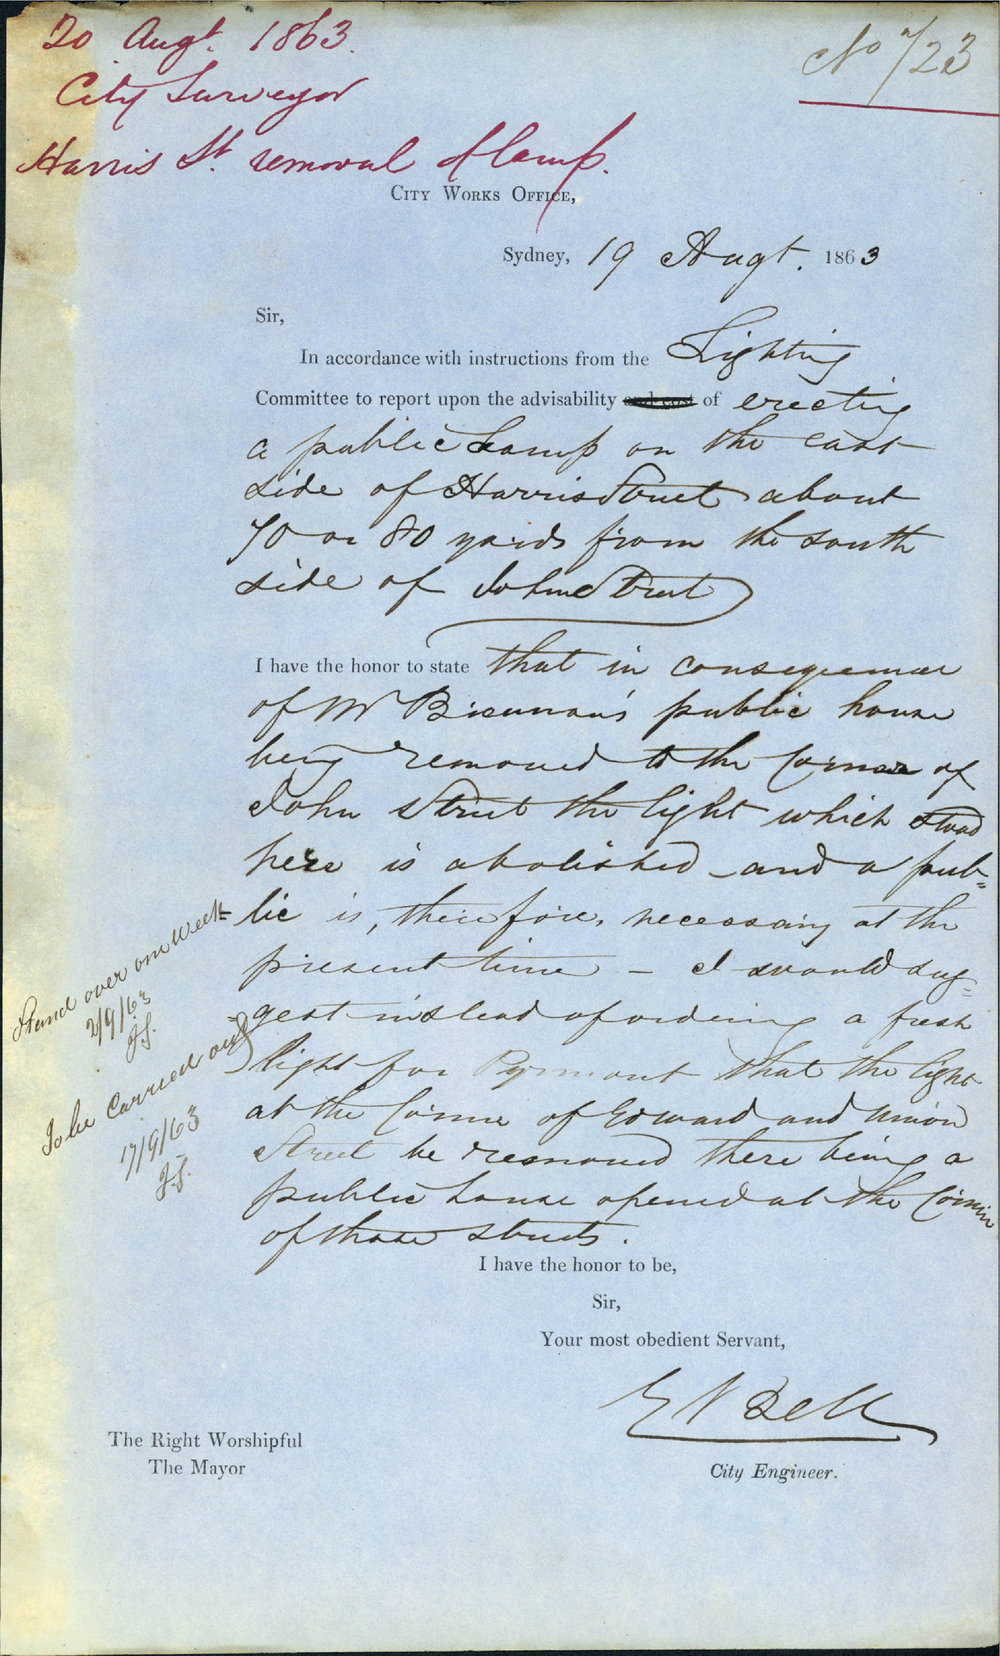 20 Augt. 1863.
No 723
City Surveyor
Harris St. removal of lamp.
City Works Office,
Sydney, 19 Augt. 1863
Sir,
In accordance with instructions from the Lighting
Committee to report upon the advisability and cost of erecting
a public Lamp on the east
side of Harris Street about
70 or 80 yards from the south
side of John Street
I have the honor to state that in consequence
of Mr public house
being removed to the Corner of
John Street the light which stood
here is abolished and a pub=
=lic is, therefore, necessary at the
present time – I would sug=
=gest instead of ordering a fresh
light for Pyrmont that the light
at the Corner of Edward and Union
Street be removed there being a
public house opened at the Corner
of those streets.
Stand over one week
2/9/63
J.S.
To be Carried out
17/9/63
J.S.
I have the honor to be,
Sir,
Your most obedient Servant,
E Bell
City Engineer.
The Right Worshipful
The Mayor